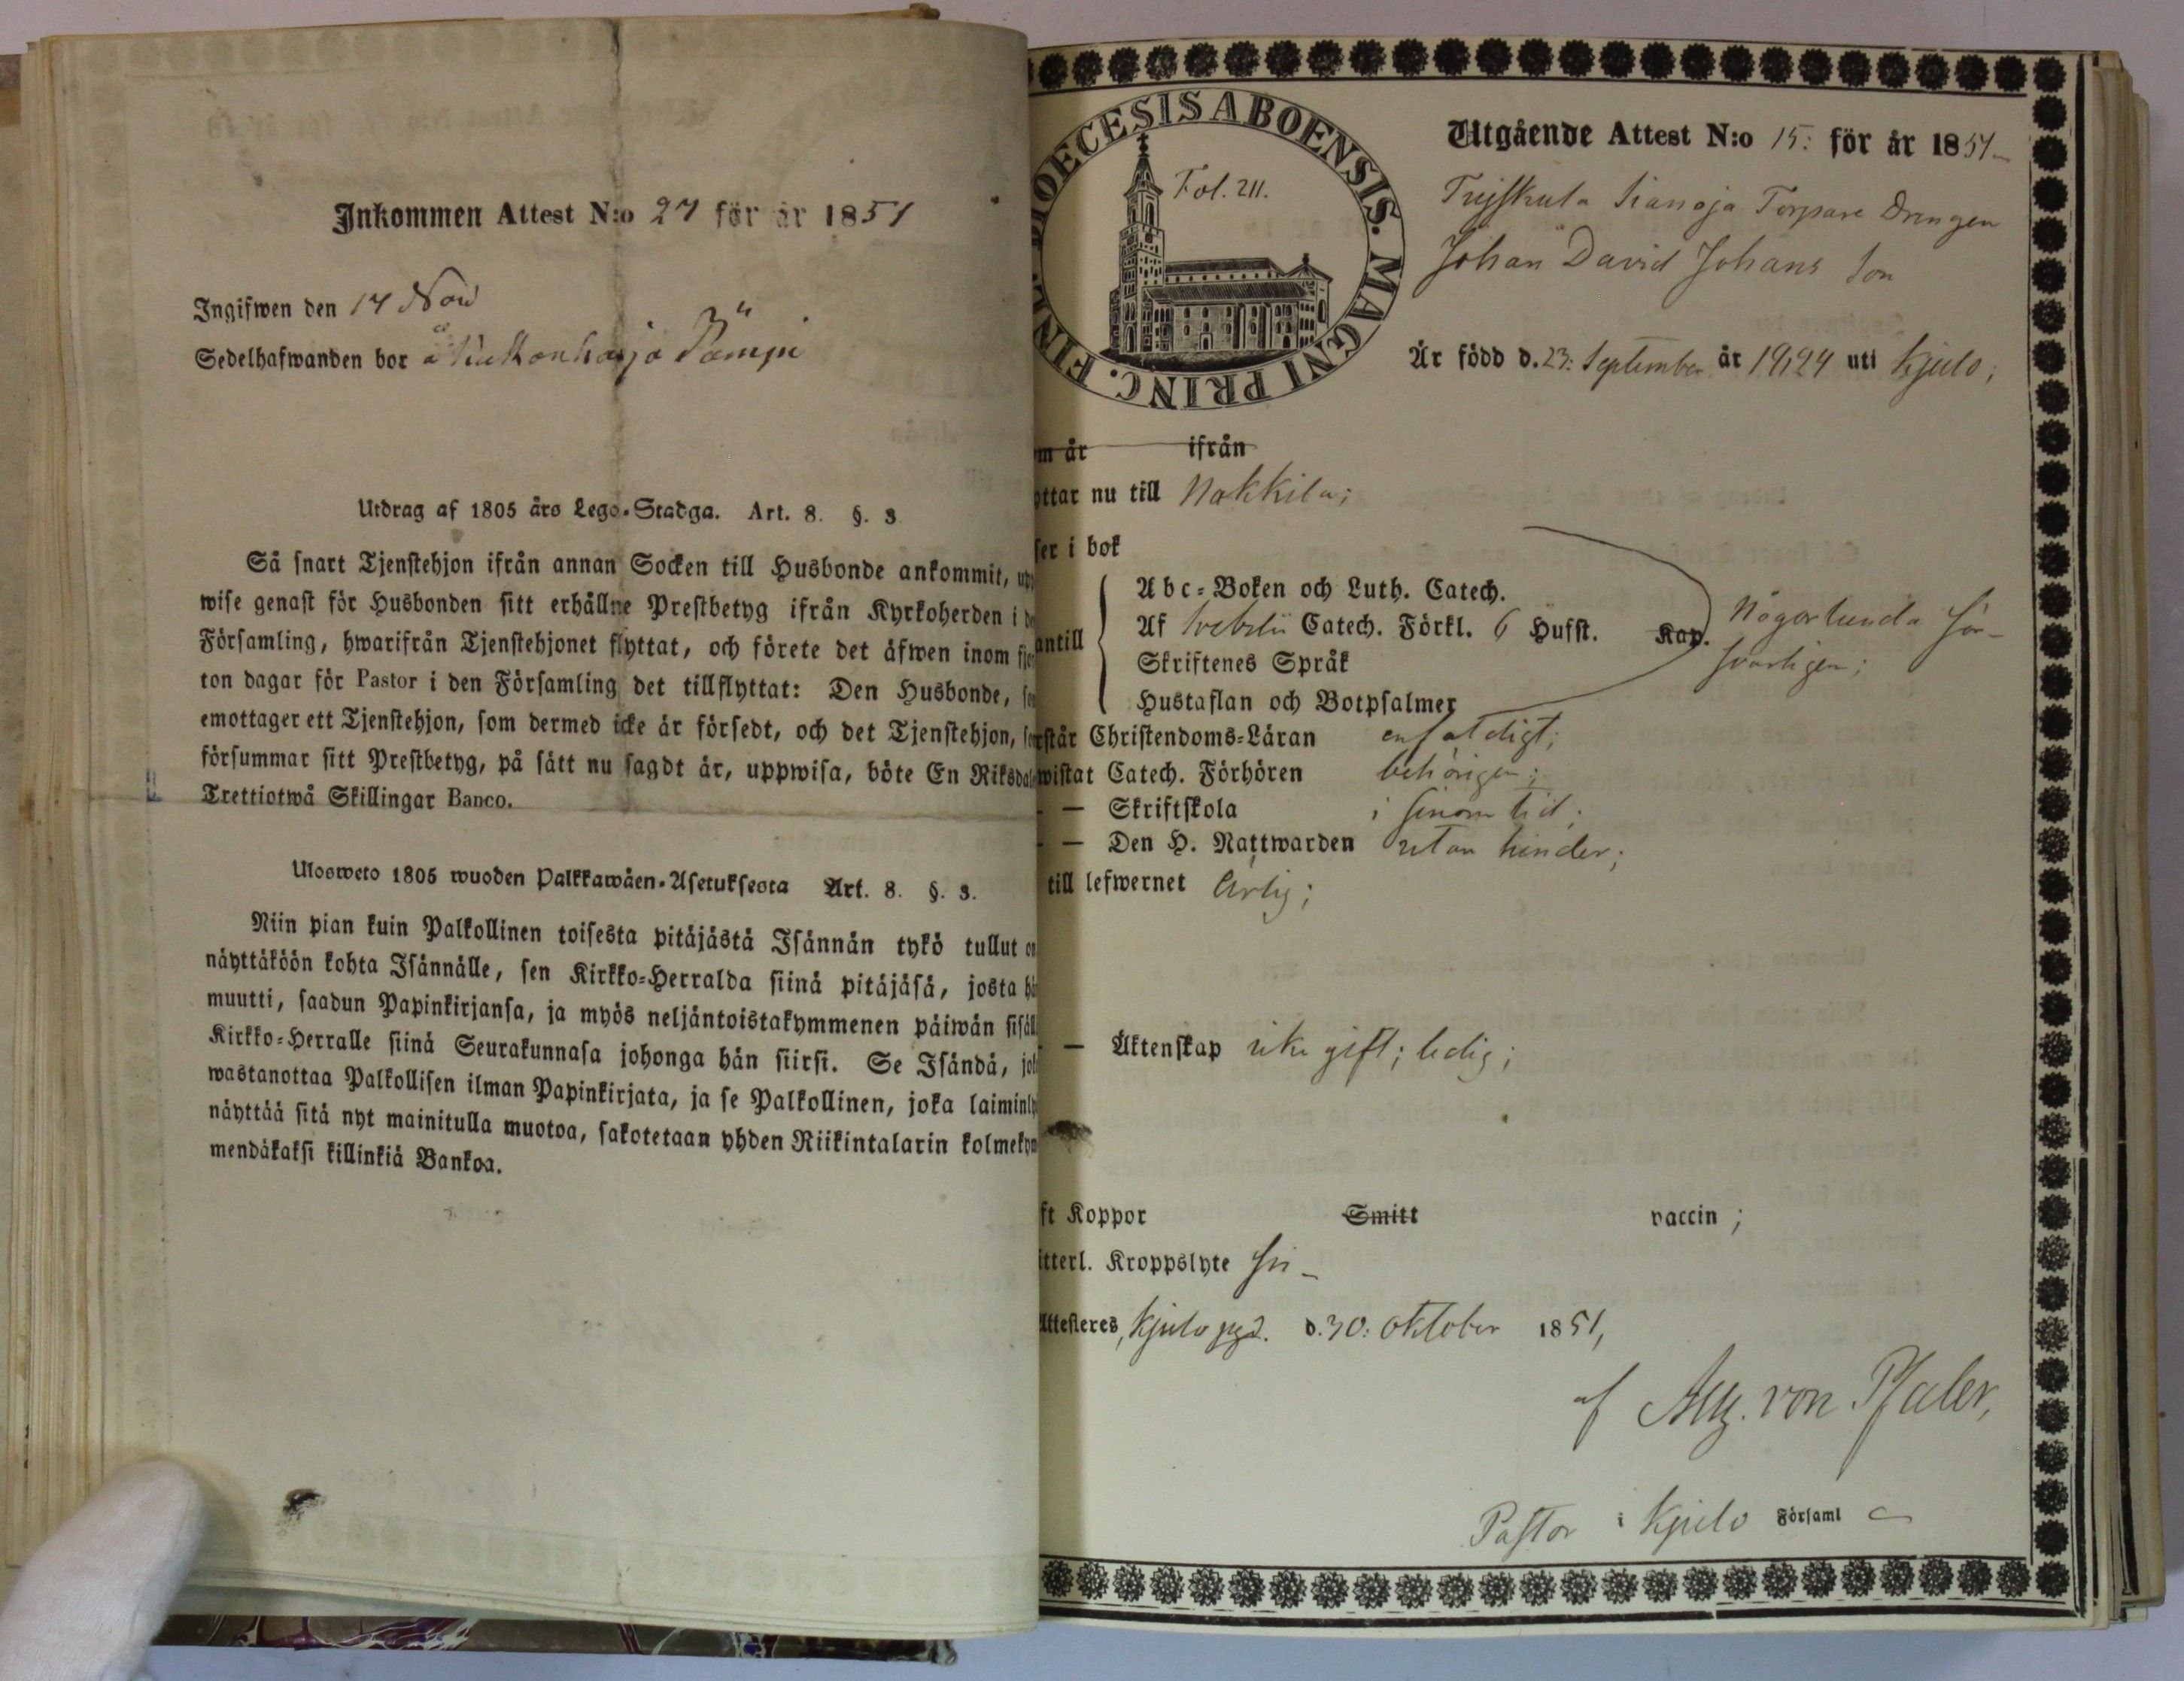 Inkommen Attest N:o 27 för år 1851
Ingifwen den 14 Nov
Sedelhafwanden bor å
Utdrag af 1805 års Lego-Stadga. Art. 8. §. 3
Så snart Tjenstehjon ifrån annan Socken till Husbonde ankommit, upp
wise genast för Husbonden sitt erhållne Prestbetyg ifrån Kyrkoherden i de
Församling, hwarifrån Tjenstehjonet flyttat, och förete det äfwen inom fjor
ton dagar för Pastor i den Församling det tillflyttat: Den Husbonde, so
emottager ett Tjenstehjon, som dermed icke är försedt, och det Tjenstehjon, so
försummar sitt Prestbetyg, på sätt nu sagdt är, uppwisa, böte En Riksdal
Trettiotwå Skillingar Banco.
Ulosweto 1805 wuoden Palkkawäen-Asetuksesta Art. 8. §. 3.
Niin pian kuin Palkollinen toisesta pitäjästä Isännän tykö tullut on
näyttäköön kohta Isännälle, sen Kirkko-Herralda siinä pitäjäsä, josta hän
muutti, saadun Papinkirjansa, ja myös neljäntoistakymmenen päiwän sisäll
Kirkko-Herralle siinä Seurakunnasa johonga hän siirsi. Se Isändä, jok
wastanottaa Palkollisen ilman Papinkirjata, ja se Palkollinen, joka laiminly
näyttää sitä nyt mainitulla muotoa, sakotetaan yhden Riikintalarin kolmekym
mendäkaksi killinkiä Bankoa.
DIOECESIS ABOENSIS. MAGNI PRINC. FINL.
Fol. 211.
Utgående Attest N:o 15: för år 1851
Torpare Drengen
Johan David Johans Son
Är född d. 23: September år 1824 uti Kjulo;
m år ifrån
yttar nu till Nakkila;
ser i bok
Abc-Boken och Luth. Catech.
antill Af Svebelii Catech. Förkl. 6 Hufst. Kap. Någorlunda för-
svarligen;
Skriftenes Språk
Hustaflan och Botpsalmer
rstår Christendoms-Läran enfaldigt;
wistat Catech. Förhören behörigen;
— Skriftskola i sinom tid;
— Den H. Nattwarden utan hinder;
till lefwernet ärlig;
— Äktenskap icke gift; ledig;
ft Koppor Smitt vaccin;
itterl. Kroppslyte fri
Attesteres, Kjulo pgd. d. 30: Oktober 1851,
af von Pfaler,
Pastor i Kjulo Församl